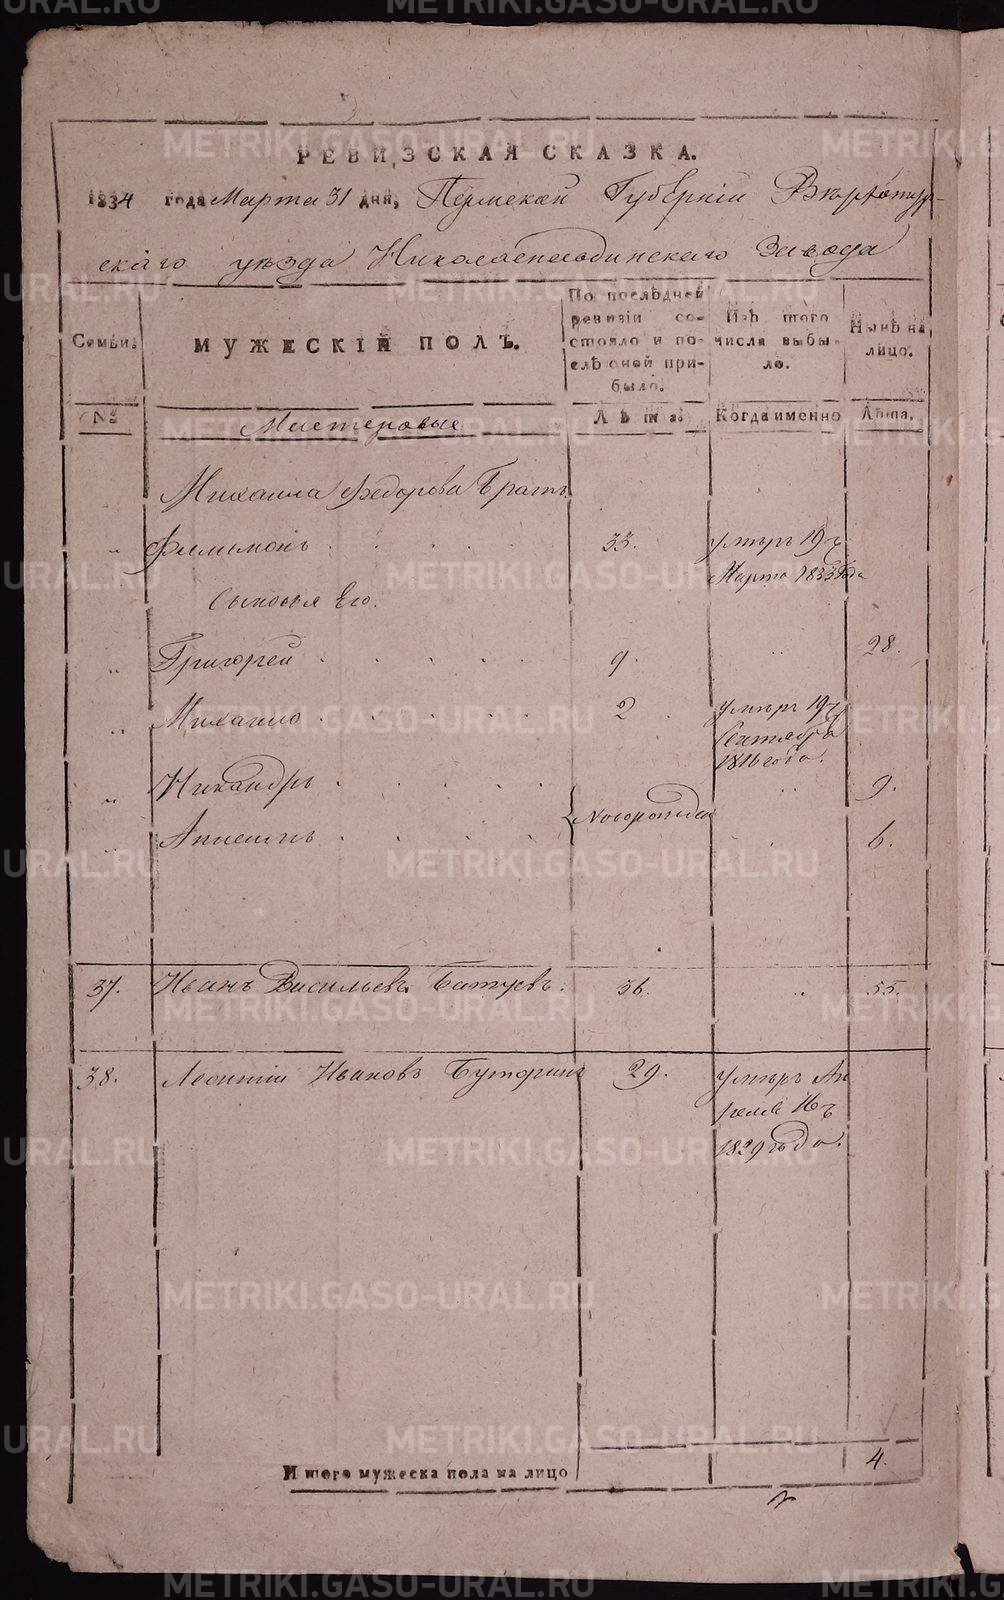 РЕВИЗСКАЯ СКАЗКА.
1834 года Марта 31 дня, Пермской Губерніи Верхотур-
скаго уезда Николаепавдинскаго Завода
Семьи.
МУЖЕСКІЙ ПОЛЪ.
По послѣдней ревизіи состояло и послѣ оной прибыло.
Изъ того числа выбыло.
Нынѣ на лицо.
№
Мастеровые
Лѣта.
Когда именно
Лѣта.
Михаила Федорова Братъ
„ Филимонъ 33. умеръ 19ч Марта 1833 года
Сыновья Его.
„ Григорей 9. „ 28.
„ Михайло 2 умеръ 19ч Сентября 1816 года.
„ Никандръ } Новорожден „ 9.
„ Анисимъ „ 6.
37. Иванъ Васильевъ Батуевъ. 36. „ 55.
38. Леонтій Ивановъ Буторинъ 29. умеръ Ап
реля 16ч
1829 года.
Итого мужеска пола на лицо 4.
METRIKI.GASO-URAL.RU